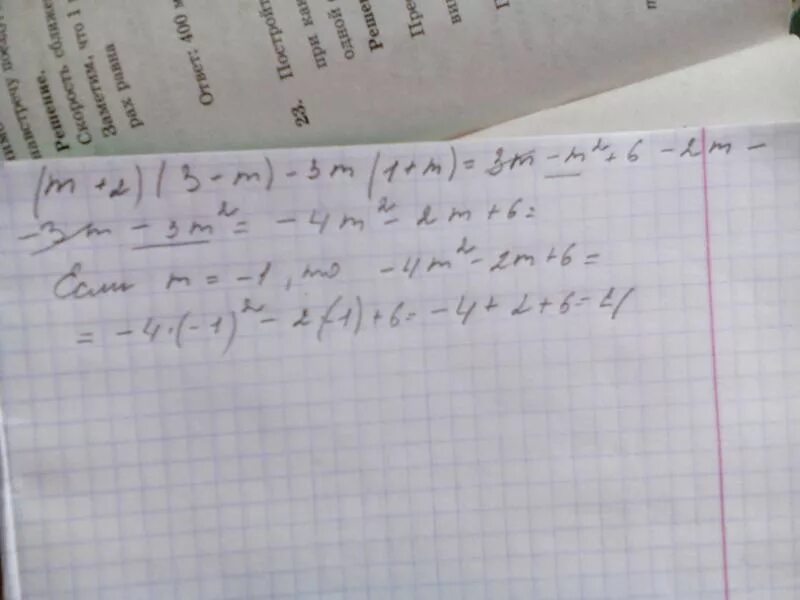 навстречу
Решение.
Скорость сближе
Заметим, что 1
рах равна
Ответ: 400 м
23. Постройт
одной
при как
Решен
Пре
(m + 2)(3 - m) - 3m(1 + m) = 3m - m² + 6 - 2m -
- 3m - 3m² = - 4m² - 2m + 6 =
Если m = -1, то - 4m² - 2m + 6 =
= - 4 · (-1)² - 2(-1) + 6 = - 4 + 2 + 6 = 4